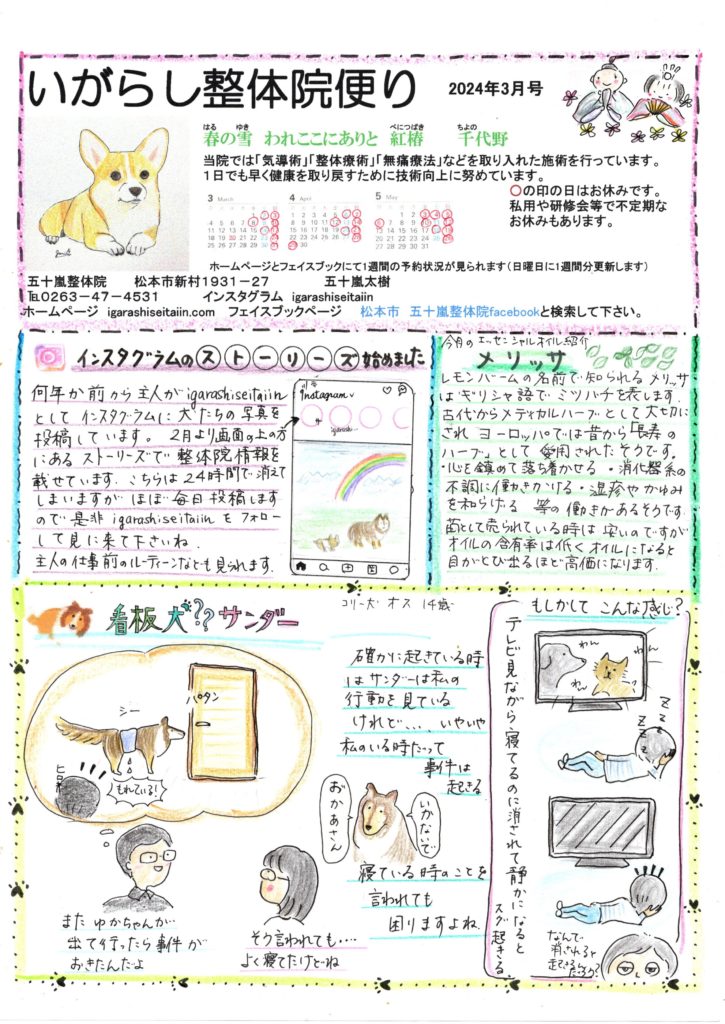 いがらし整体院便り
2024年3月号
春の雪 われここにありと 紅椿 千代野
はる ゆき べにつばき ちよの
当院では「気導術」「整体療術」「無痛療法」などを取り入れた施術を行っています。
1日でも早く健康を取り戻すために技術向上に努めています。
○の印の日はお休みです。
私用や研修会等で不定期な
お休みもあります。
3 March
4 April
5 May
ホームページとフェイスブックにて1週間の予約状況が見られます(日曜日に1週間分更新します)
五十嵐整体院 松本市新村1931-27 五十嵐太樹
℡0263-47-4531 インスタグラム igarashiseitaiin
ホームページ igarashiseitaiin.com フェイスブックページ 松本市 五十嵐整体院facebookと検索して下さい。
インスタグラムのストーリーズ始めました
何年か前から主人がigarashiseitaiin
としてインスタグラムに犬たちの写真を
投稿しています。2月より画面の上の方
にあるストーリーズで整体院情報を
載せています。こちらは24時間で消えて
しまいますがほぼ毎日投稿します
ので是非igarashiseitaiinをフォロー
して見に来て下さいね。
主人の仕事前のルーティーンなども見られます。
Instagram
igarashi...
今月のエッセンシャルオイル紹介
メリッサ
レモンバームの名前で知られるメリッサ
はギリシャ語でミツバチを表します。
古代からメディカルハーブとして大切に
され ヨーロッパでは昔から「長寿の
ハーブ」として愛用されたそうです。
・心を鎮めて落ち着かせる・消化器系の
不調に働きかける・湿疹やかゆみ
を和らげる 等の働きがあるそうです
苗として売られている時は安いのですが
オイルの含有率は低くオイルになると
目がとび出るほど高価になります。
看板犬??サンダー
コリー犬 オス 14歳
シー
パタン
兄
もれている!
またゆかちゃんが
出て行ったら事件が
おきたんだよ
そう言われても‥‥
よく寝てたけどね
確かに起きている時
はサンダーは私の
行動を見ている
けれど‥、いやいや
私のいる時だって
事件は
起きる
おかあさん
いかないで
寝ている時のことを
言われても
困りますよね
もしかして こんな感じ?
テレビ見ながら寝てるのに消されて静かになると
スグ起きる
わん
わん
わん
Z Z Z
なんで
消されると
起きるんだろう?